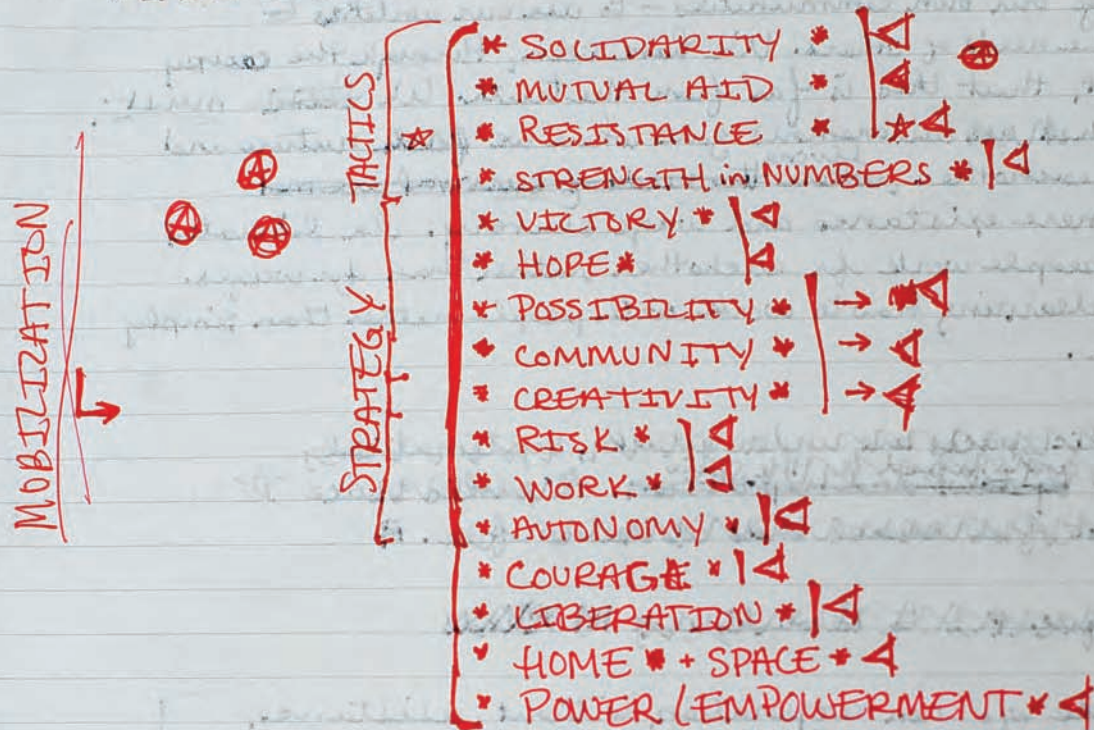 MOBILIZATION
TACTICS
STRATEGY
* SOLIDARITY *
* MUTUAL AID *
* RESISTANCE *
* STRENGTH in NUMBERS *
* VICTORY *
* HOPE *
* POSSIBILITY * →
* COMMUNITY * →
* CREATIVITY * →
* RISK *
* WORK *
* AUTONOMY *
* COURAGE *
* LIBERATION *
* HOME * + SPACE *
* POWER / EMPOWERMENT *